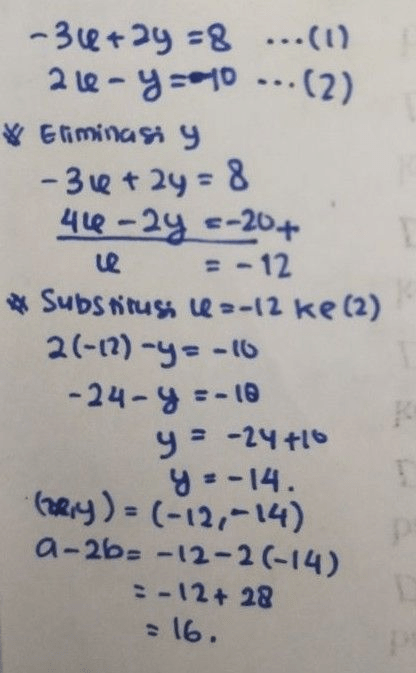 -3x + 2y = 8 ...(1)
2x - y = -10 ...(2)
* Eliminasi y
-3x + 2y = 8
4x - 2y = -20 +
x = -12
* Substitusi x = -12 ke (2)
2(-12) - y = -10
-24 - y = -10
y = -24 + 10
y = -14.
(x,y) = (-12, -14)
a - 2b = -12 - 2(-14)
= -12 + 28
= 16.